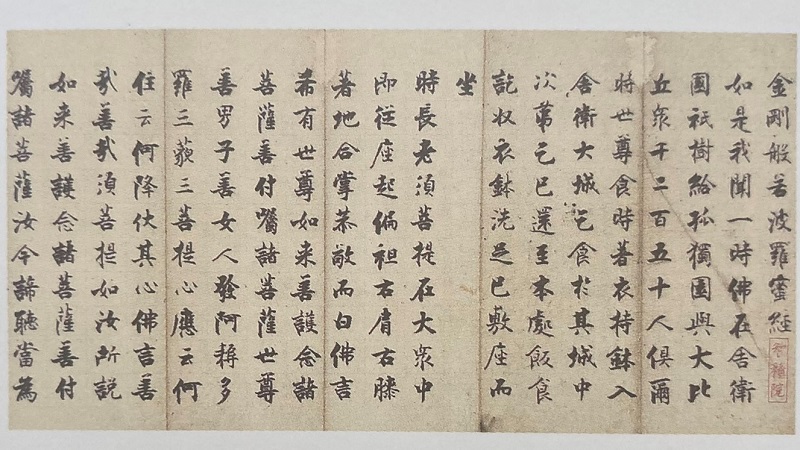 金剛般若波羅蜜經
如是我聞一時佛在舎衛
國祇樹給孤獨園與大比
丘衆千二百五十人俱爾
時世尊食時著衣持鉢入
舎衛大城乞食於其城中
次第乞已還至本處飯食
訖收衣鉢洗足已敷座而
坐
時長老須菩提在大衆中
即從座起偏袒右肩右膝
著地合掌恭敬而白佛言
希有世尊如来善護念諸
菩薩善付囑諸菩薩世尊
善男子善女人發阿耨多
羅三藐三菩提心應云何
住云何降伏其心佛言善
㢤善㢤須菩提如汝所說
如来善護念諸菩薩善付
囑諸菩薩汝今諦聽當為